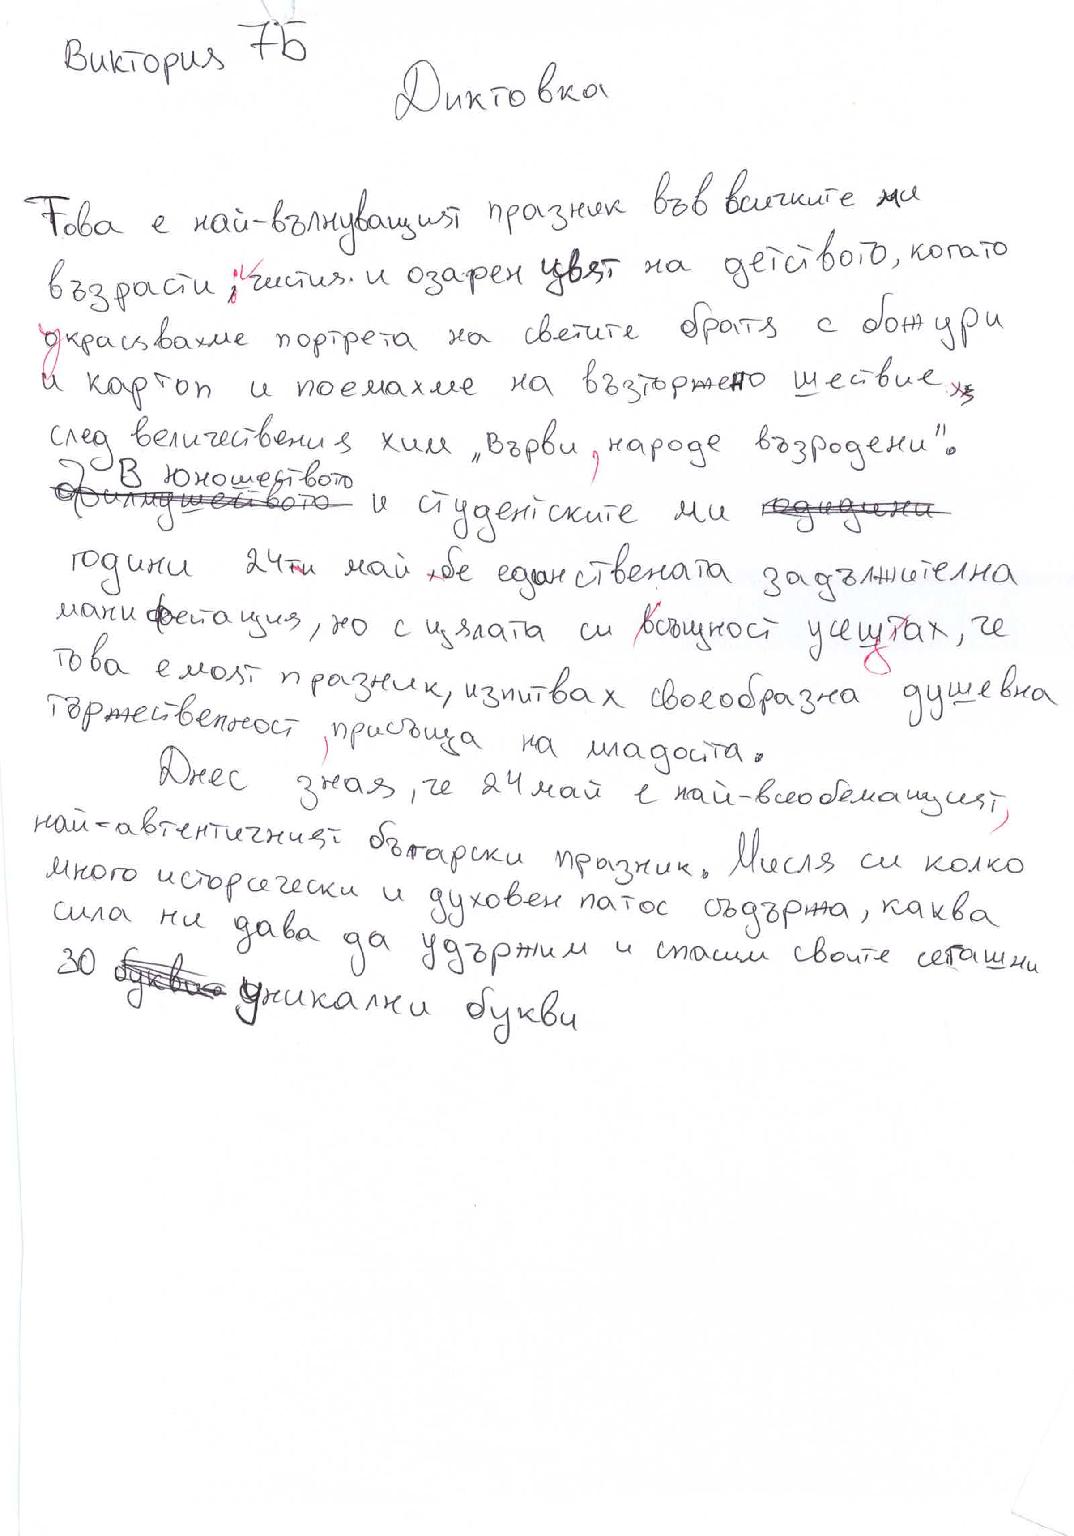 Виктория 7Б
Диктовка
Това е най-вълнуващият празник във всичките ми
възрасти, чистия и озарен цвят на детството, когато
украсявахме портрета на светите братя с божури
и картон и поемахме на възторжено шествие
след величествения химн „Върви, народе възродени".
В юношеството
и студентските ми
години 24ти май бе единствената задължителна
манифестация, но с цялата си всъщност усещтах, че
това е моят празник, изпитвах своеобразна душевна
тържественност, присъща на младостта.
Днес зная, че 24 май е най-всеобемащият,
най-автентичният български празник. Мисля си колко
много исторически и духовен патос съдържа, каква
сила ни дава да удържим и спасим своите сегашни
30 уникални букви